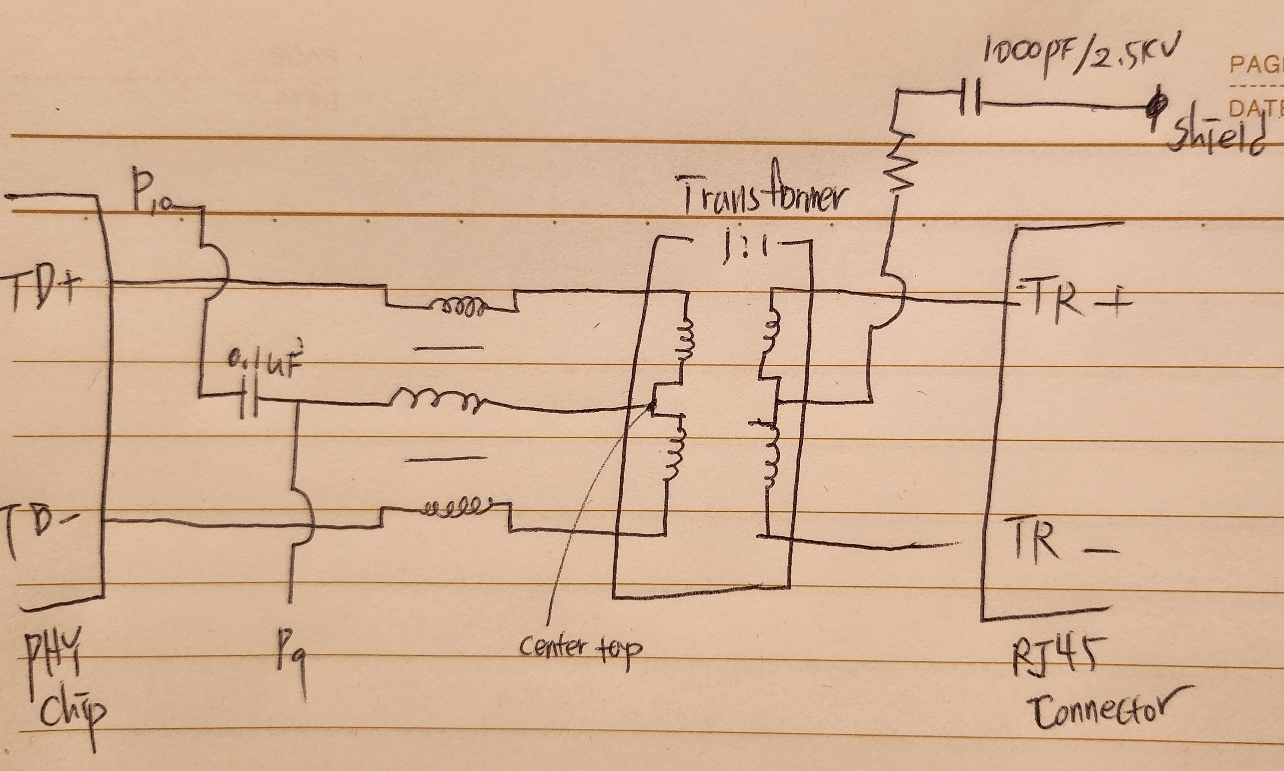 1000pF/2.5KV
PAG
DATE
shield
P10
Transformer
1:1
TD+
TR +
0.1uF
TD-
TR -
PHY
chip
P9
center tap
RJ45
Connector